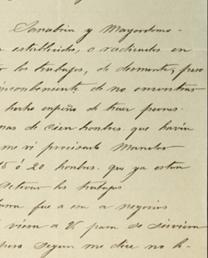 Sanabria y Mayordomo-
establecidos, o radicados en
los trabajos, de desmonte, pero
inconveniente de no encontrar
hecho empeño de traer perso-
nas de cien hombres, que havia
me vi precisado Mandar
15 ó 20 hombres que ya estan
los trabajos
fue a em a negocios
viera a V para de
pero segun me dice no h-